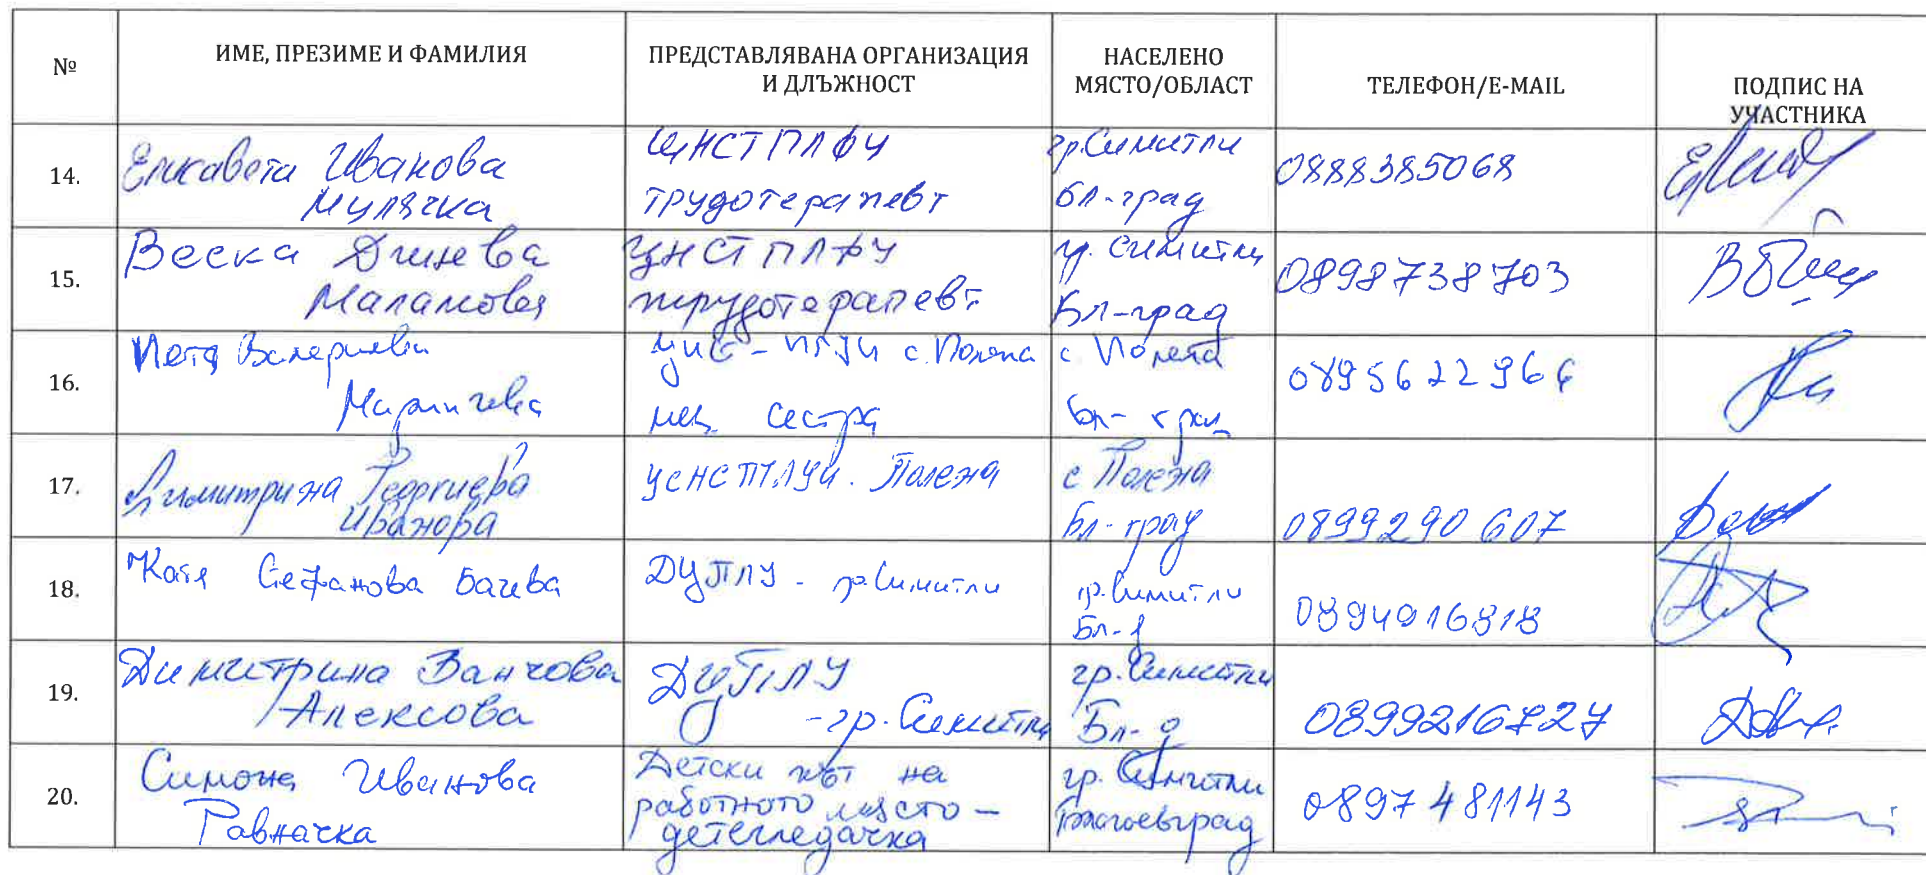 №
ИМЕ, ПРЕЗИМЕ И ФАМИЛИЯ
ПРЕДСТАВЛЯВАНА ОРГАНИЗАЦИЯ
И ДЛЪЖНОСТ
НАСЕЛЕНО
МЯСТО/ОБЛАСТ
ТЕЛЕФОН/E-MAIL
ПОДПИС НА
УЧАСТНИКА
14.
Елисавета Иванова
Мулячка
ЦНСТПЛФУ
трудотерапевт
гр. Симитли
Бл-град
0888385068
15.
Веска Динева
Маламова
ЦНСТПЛФУ
трудотерапевт
гр. Симитли
Бл-град
0898738703
16.
Петя Валериева
с. Полена
мед. сестра
с Полена
Бл-град
17.
Димитрина Георгиева
Иванова
Полена
с Полена
Бл-град
0899290607
18.
Катя Стефанова Бачева
ДЦПЛУ - гр. Симитли
гр. Симитли
Бл-г
19.
Димитрина Ванчова
Алексова
ДЦПЛУ
-гр. Симитли
гр. Симитли
Бл-г
0899216727
20.
Симона Иванова
Равначка
Детски кът на
работното място -
детегледачка
гр. Симитли
Благоевград
0897481143